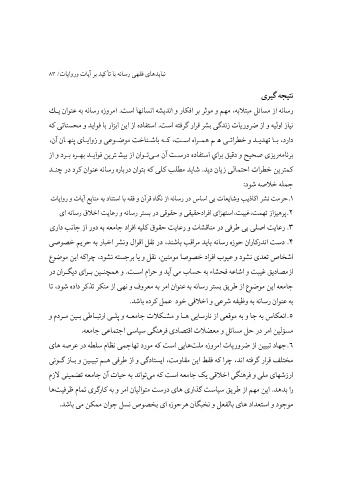 نبایدهای فقهی رسانه با تأکید بر آیات وروایات/ ۸۳
نتیجه گیری
رسانه از مسائل مبتلابه، مهم و موثر بر افکار و اندیشه انسانها است. امروزه رسانه به عنوان یک
نیاز اولیه و از ضروریات زندگی بشر قرار گرفته است. استفاده از این ابزار با فواید و محسناتی که
دارد، با تهدید و خطراتی هم همراه است، که باشناخت موضوعی و زوایای پنهان آن،
برنامه‌ریزی صحیح و دقیق برای استفاده درست آن می‌توان از بیشترین فواید بهره برد و از
کمترین خطرات احتمالی زیان دید. شاید مطلب کلی که بتوان درباره رسانه عنوان کرد در چند
جمله خلاصه شود:
۱.حرمت نشر اکاذیب وشایعات بی اساس در رسانه از نگاه قرآن و فقه با استناد به منابع آیات و روایات
۲.پرهیزاز تهمت، غیبت، استهزای افرادحقیقی و حقوقی در بستر رسانه و رعایت اخلاق رسانه ای
۳. رعایت اصلی بی طرفی در مناقشات و رعایت حقوق کلیه افراد جامعه به دور از جانب داری
۴. دست اندرکاران حوزه رسانه باید مراقب باشند، در نقل اقوال ونشر اخبار به حریم خصوصی
اشخاص تعدی نشود و عیوب افراد خصوصا مومنین، نقل و یا برجسته نشود، چراکه این موضوع
ازمصادیق غیبت و اشاعه فحشاء به حساب می آید و حرام است. و همچنین برای دیگران در
جامعه این موضوع از طریق بستر رسانه به‌عنوان امر به معروف و نهی از منکر تذکر داده شود، تا
به عنوان رسانه به وظیفه شرعی و اخلاقی خود عمل کرده باشد.
۵.انعکاس به جا و به موقعی از نارسایی ها و مشکلات جامعه و پلی ارتباطی بین مردم و
مسؤلین امر در حل مسائل و معضلات اقتصادی فرهنگی سیاسی اجتماعی جامعه.
۶.جهاد تبیین از ضروریات امروزه ملت‌هایی است که مورد تهاجمی نظام سلطه در عرصه های
مختلف قرار گرفته اند، چرا که فقط این مقاومت، ایستادگی و از طرفی هم تبیین و بازگوئی
ارزشهای ملی و فرهنگی اخلاقی یک جامعه است که می‌تواند به حیات آن جامعه تضمینی لازم
را بدهد. این مهم از طریق سیاست گذاری های درست متوالیان امر و به کارگری تمام ظرفیت‌ها
موجود و استعداد های بالفعل و نخبگان هرحوزه ای بخصوص نسل جوان ممکن می باشد.